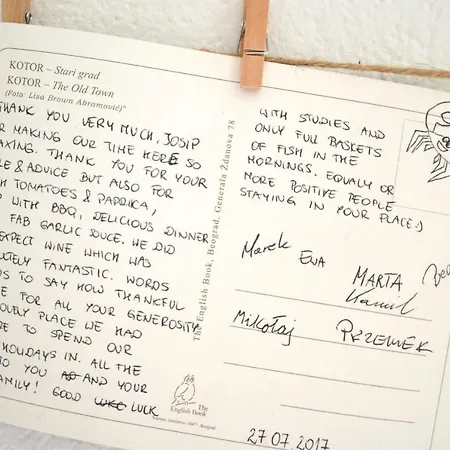 KOTOR – Stari grad
KOTOR – The Old Town
(Foto: Lisa Brown Abramović)
THANK YOU VERY MUCH, JOSIP
R MAKING OUR TIME HERE SO
AXING. THANK YOU FOR YOUR
LE & ADVICE BUT ALSO FOR
H TOMATOES & PAPRIKA,
WITH BBQ, DELICIOUS DINNER
FAB GARLIC DUCE. WE DID
EXPECT WINE WHICH WAS
UTELY FANTASTIC. WORDS
US TO SAY HOW THANKFUL
E FOR ALL YOUR GENEROSITY
OVELY PLACE WE HAD
RE TO SPEND OUR
HOLIDAYS IN. ALL THE
O YOU AD AND YOUR
AMILY! GOOD LUKC LUCK
The English Book, Beograd, Generala Ždanova 78
The
English Book
WITH STUDIES AND
ONLY FULL BASKETS
OF FISH IN THE
MORNINGS. EQUALY OR
MORE POSITIVE PEOPLE
STAYING IN YOUR PLACE:)
Marek
EWA
MARTA
Kamil
Mikołaj
PRZEMEK
27.07.2017